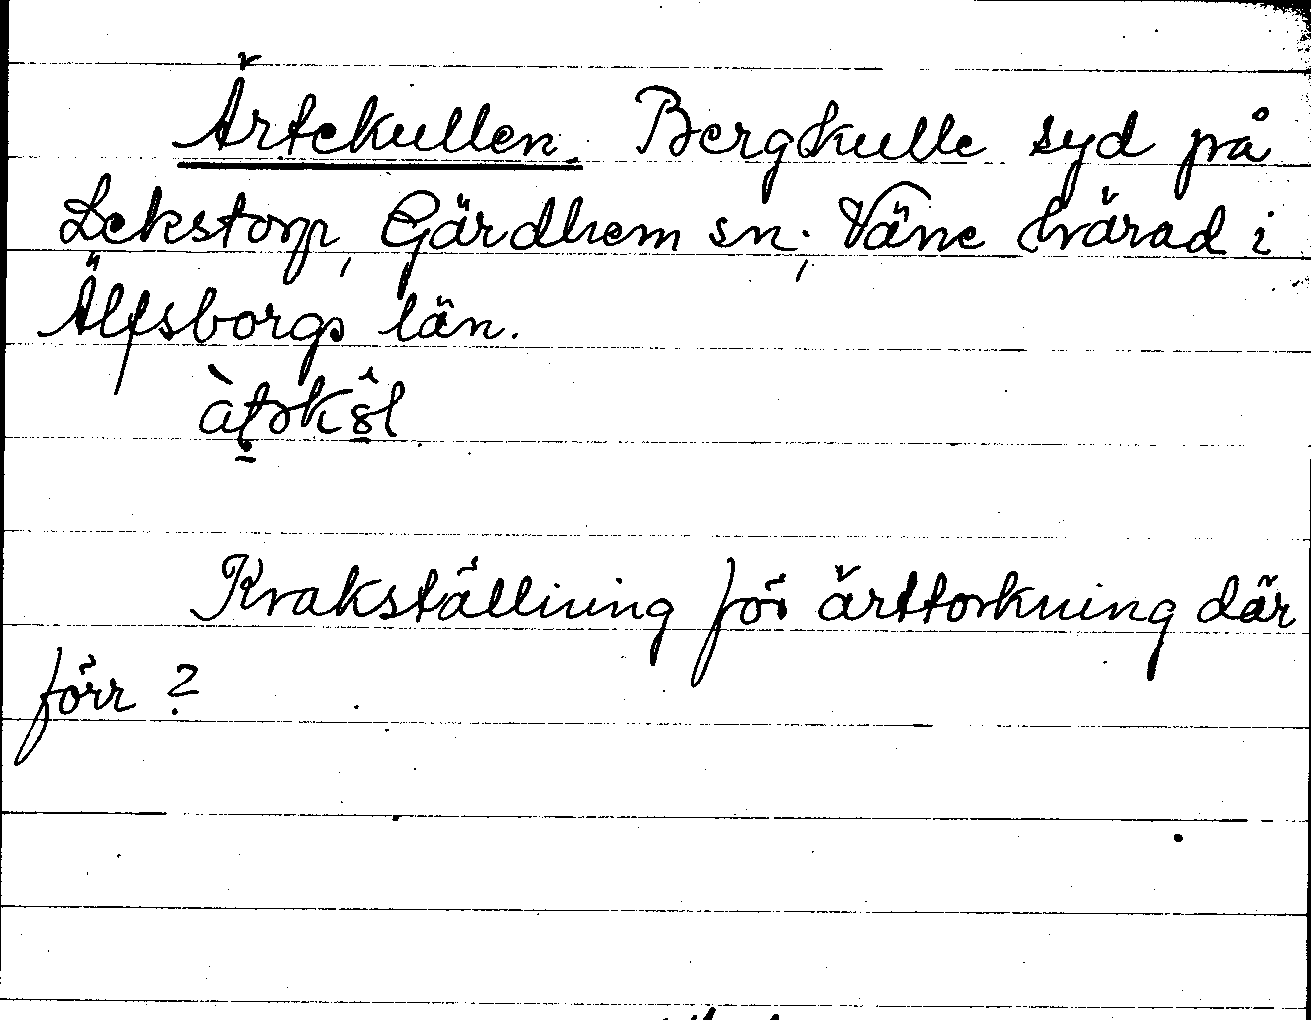 Ärtekullen. Bergkulle syd på
Lekstorp, Gärdhem sn; Väne härad i
Älfsborgs län.
Krakställning för ärttorkning där
förr ?